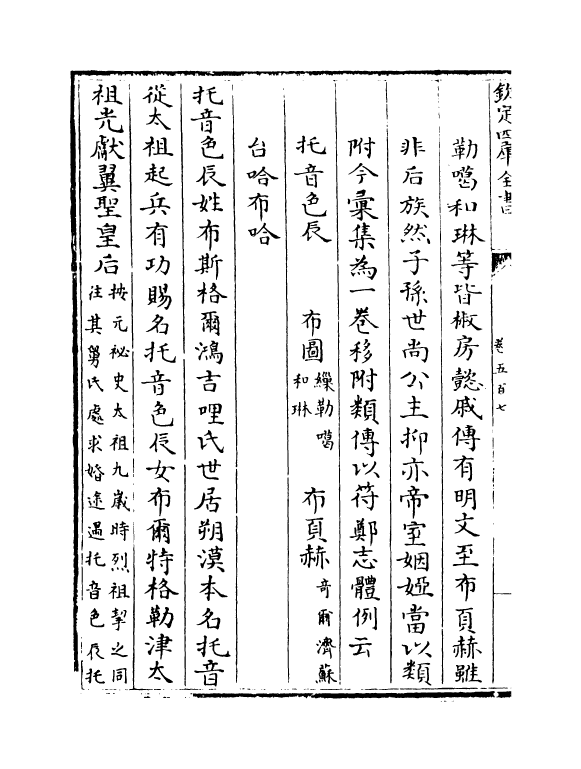 欽定四庫全書
卷五百七
勒噶和琳等皆椒房懿戚傳有明文至布頁赫雖
非后族然子孫世尚公主抑亦帝室姻婭當以類
附今彙集為一卷移附類傳以符鄭志體例云
托音色辰　布圖繅勒噶和琳　布頁赫奇爾濟蘇
台哈布哈
托音色辰姓布斯格爾鴻吉哩氏世居朔漠本名托音
從太祖起兵有功賜名托音色辰女布爾特格勒津太
祖光獻翼聖皇后按元祕史太祖九歲時烈祖挈之同
往其舅氏處求婚途遇托音色辰托